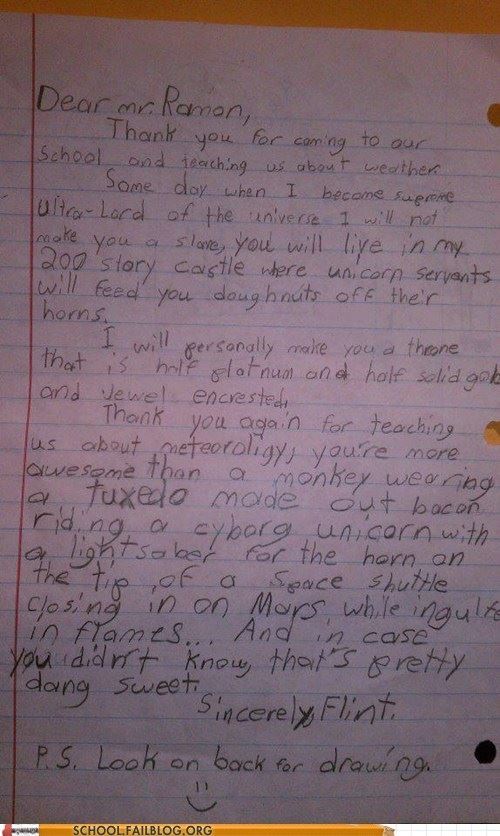 Dear mr. Ramon,
Thank you for coming to our
school and teaching us about weather.
Some day when I become supreme
Ultra-Lord of the universe I will not
make you a slave, you will live in my
200 story castle where unicorn servants
will feed you doughnuts off their
horns.
I will personally make you a throne
that is half platnum and half solid gold
and jewel encrested.
Thank you again for teaching
us about meteoroligy, you're more
awesome than a monkey wearing
a tuxedo made out bacon
riding a cyborg unicorn with
a lightsaber for the horn on
the tip of a space shuttle
closing in on Mars while ingulfed
in flames... And in case
you didn't know, that's pretty
dang sweet.
Sincerely, Flint.
P.S. Look on back for drawing.
SCHOOL.FAILBLOG.ORG